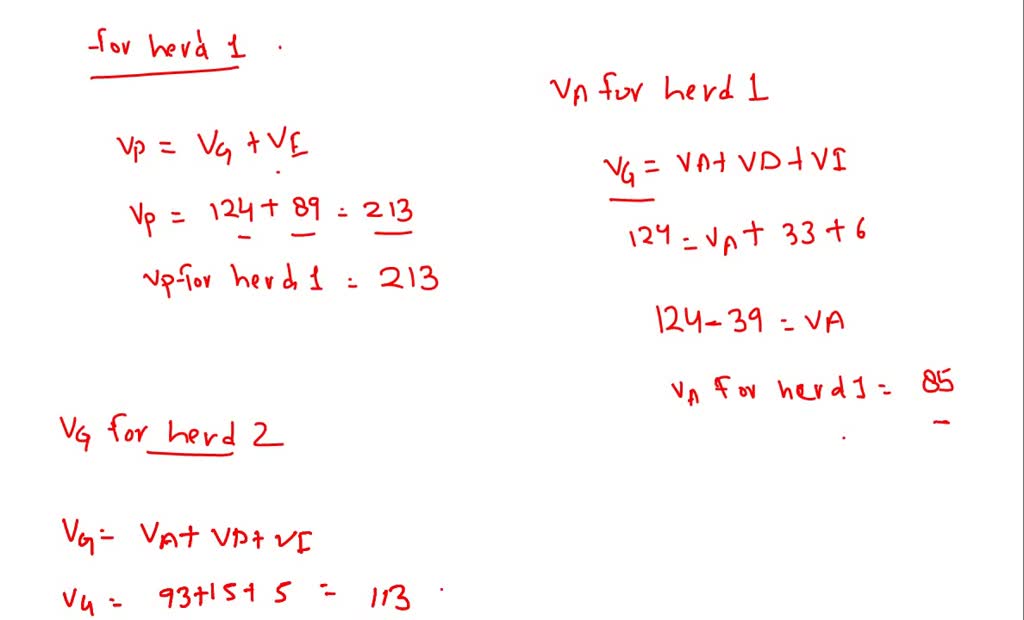 for herd 1
VP = VG + VE
VP = 124 + 89 = 213
VP for herd 1 = 213
VA for herd 1
VG = VA + VD + VI
124 = VA + 33 + 6
124 - 39 = VA
VA for herd 1 = 85
VG for herd 2
VG = VA + VD + VI
VG = 93 + 15 + 5 = 113